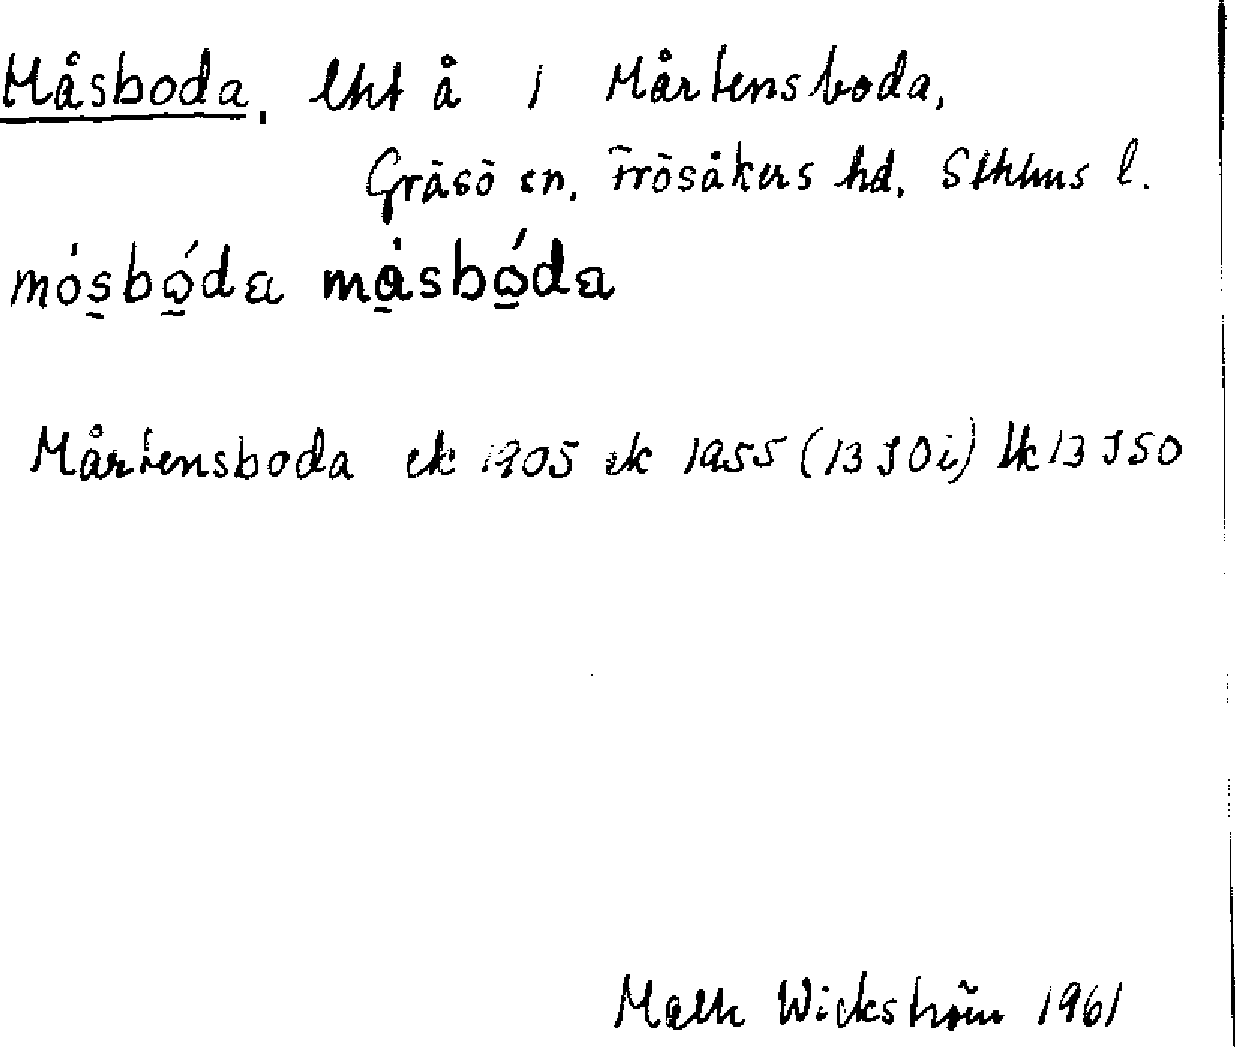 Måsboda, lht å 1 Mårtensboda,
Gräsö sn, Frösåkers hd, Sthlms l.
mósbǫ́da mǻsbǫ́da
Mårtensboda ek 1905 ek 1955 (13 I 0i) lk 13 I SO
Wickström 1961